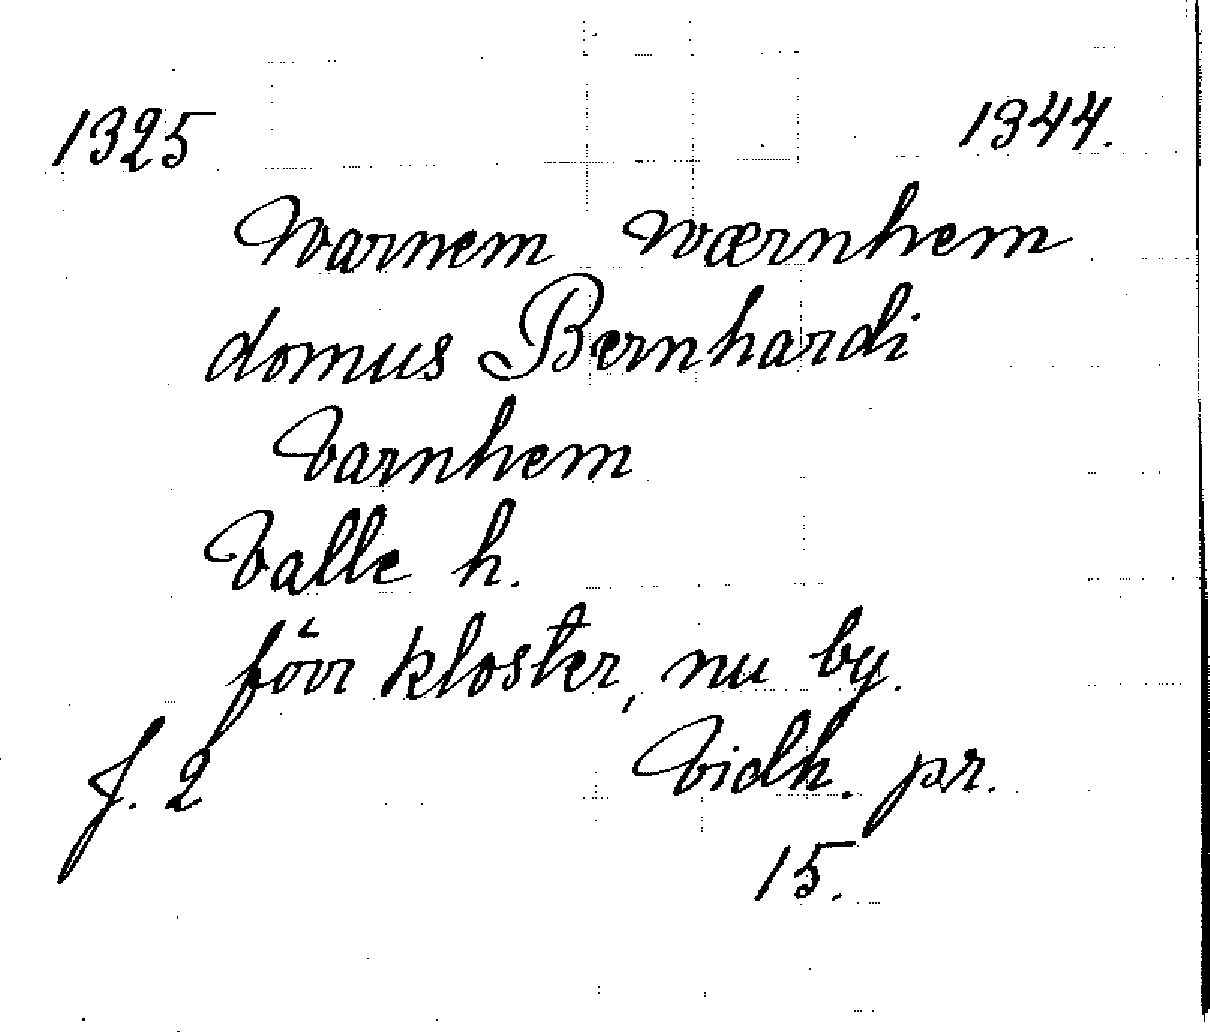 1325 1344.
Warnem Wærnhem
domus Bernhardi
Varnhem
Valle h.
förr kloster, nu by.
f. 2 Vidh. pr.
15.